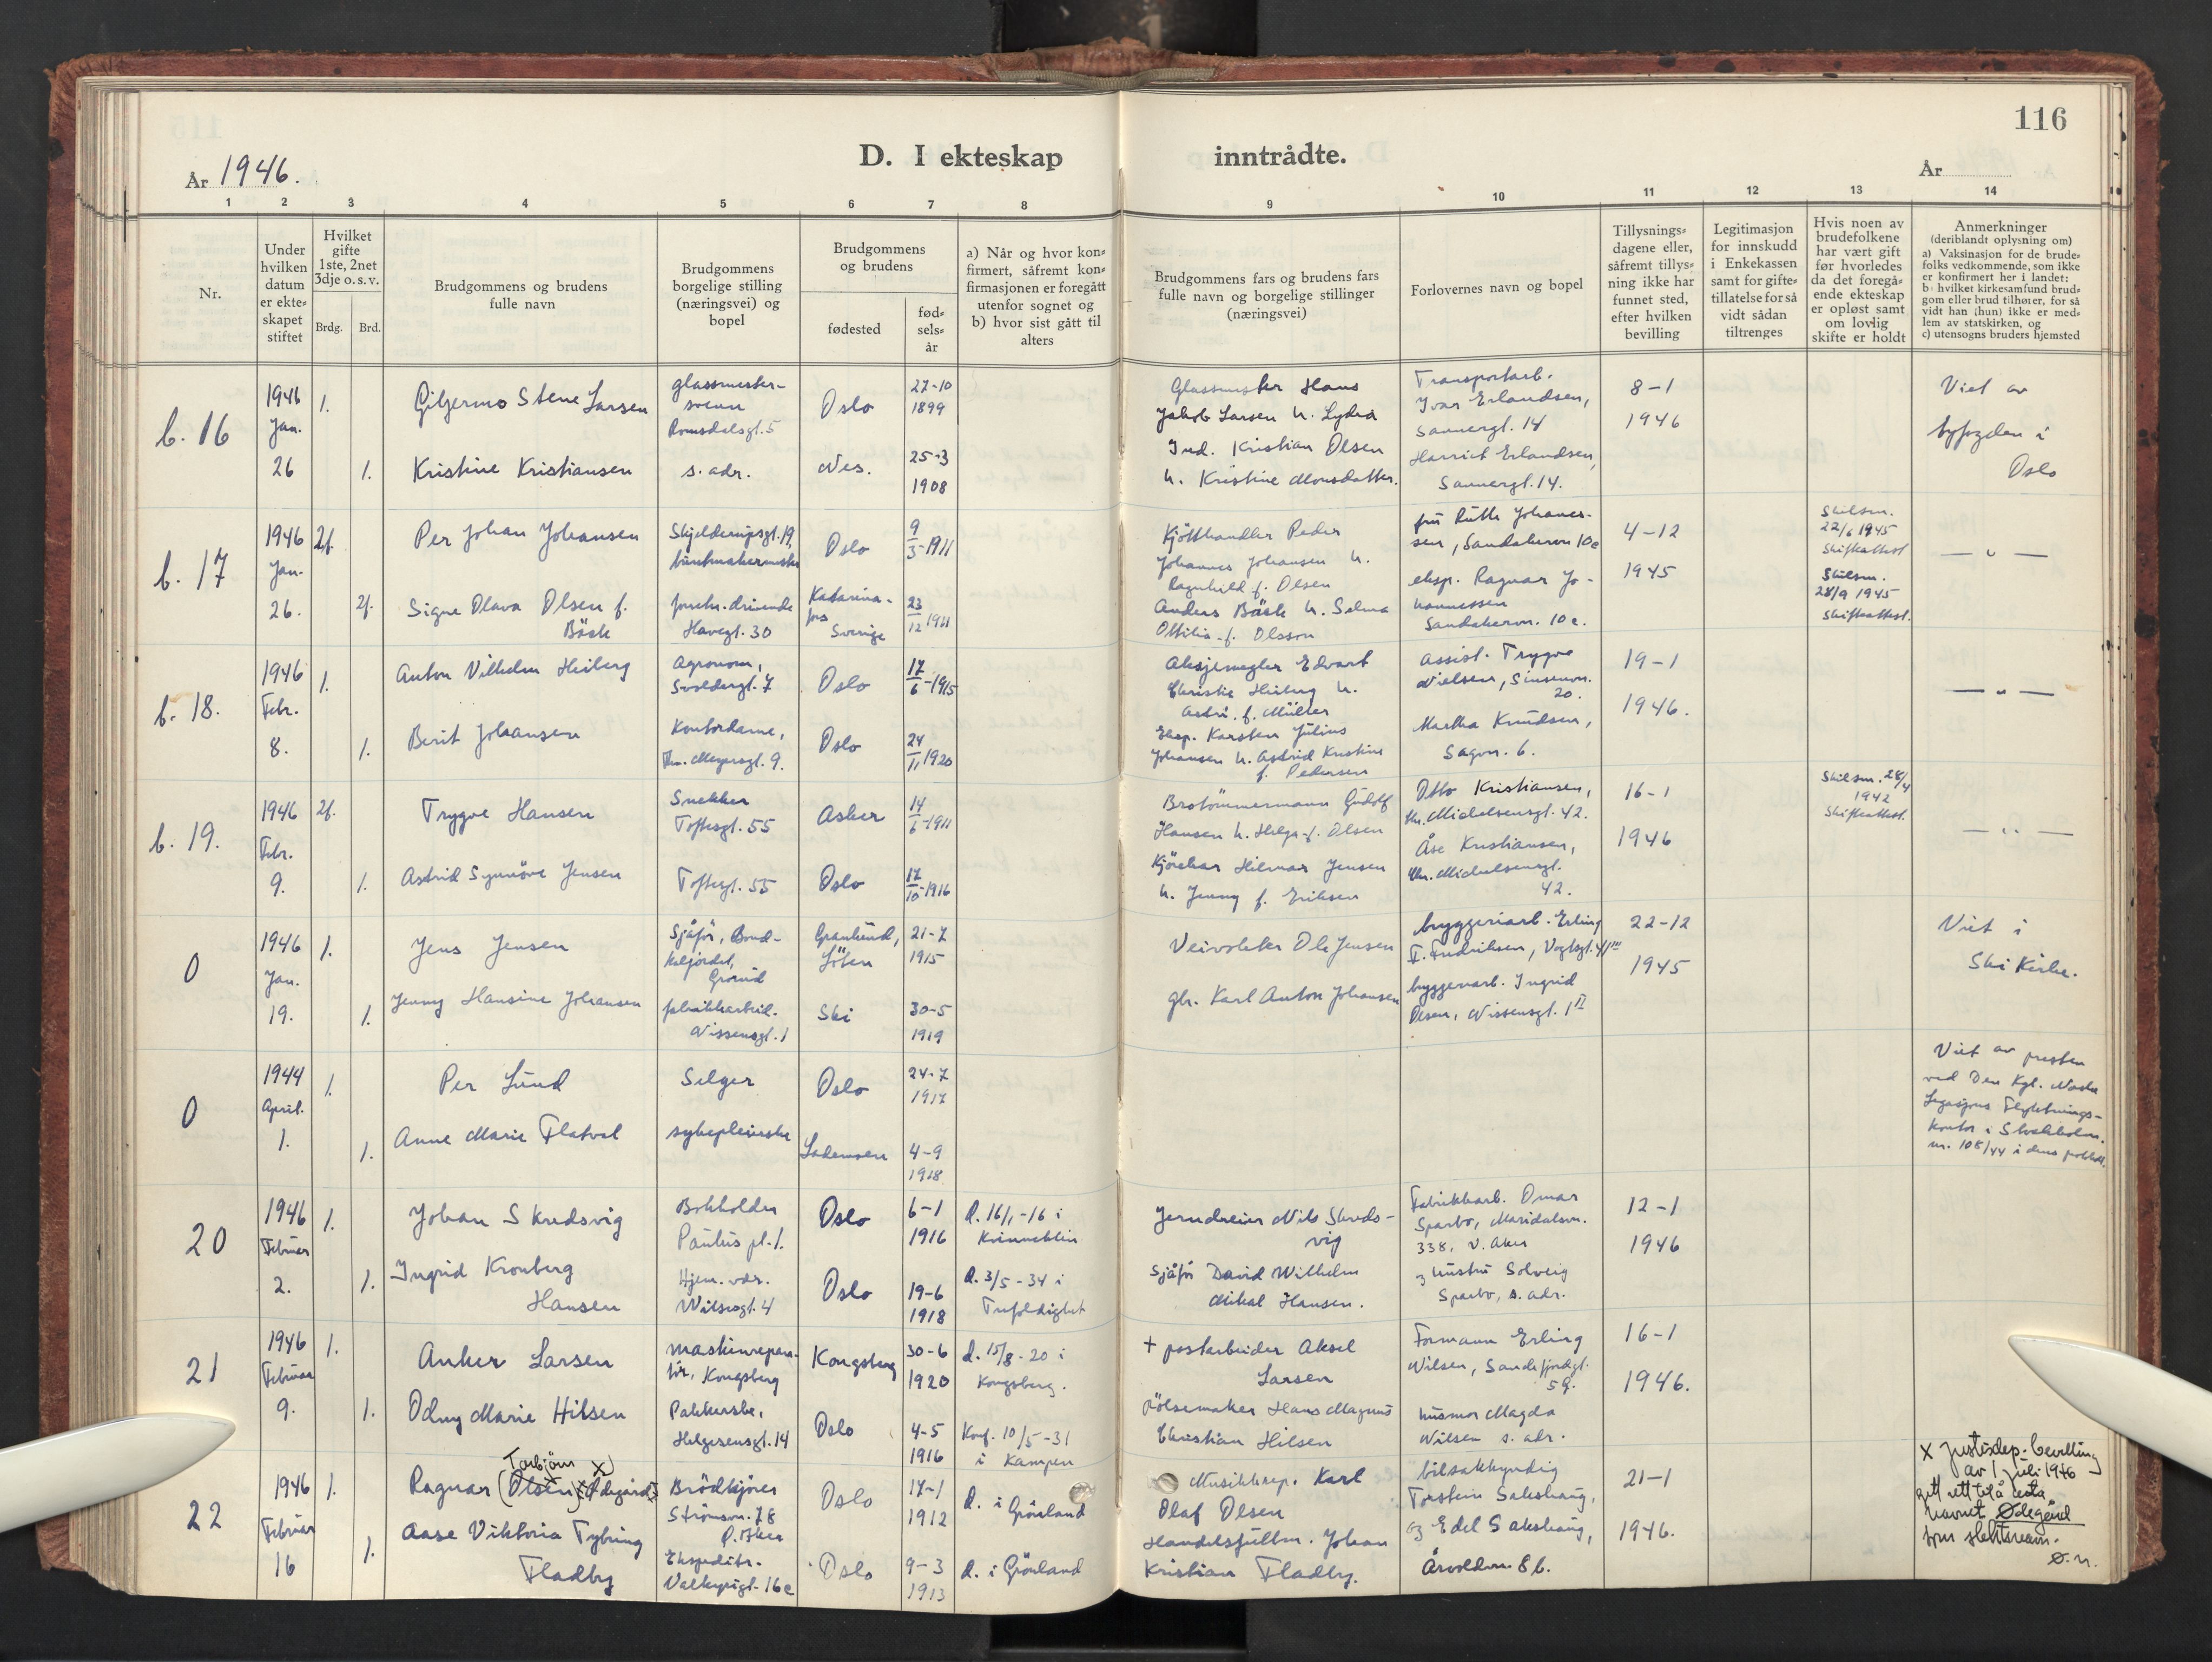 116
D. I ekteskap inntrådte.
År 1946.
År
1 2 3 4 5 6 7 8 9 10 11 12 13 14
Nr.
Under
hvilken
datum
er ekte=
skapet
stiftet
Hvilket
gifte
1ste, 2net
3dje o. s. v.
Brdg. Brd.
Brudgommens og brudens
fulle navn
Brudgommens
borgelige stilling
(næringsvei) og
bopel
Brudgommens
og brudens
fødested
fød=
sels=
år
a) Når og hvor kon=
firmert, såfremt kon=
firmasjonen er foregått
utenfor sognet og
b) hvor sist gått til
alters
Brudgommens fars og brudens fars
fulle navn og borgelige stillinger
(næringsvei)
Forlovernes navn og bopel
Tillysnings=
dagene eller,
såfremt tillys=
ning ikke har
funnet sted,
efter hvilken
bevilling
Legitimasjon
for innskudd
i Enkekassen
samt for gifte=
tillatelse for så
vidt sådan
tiltrenges
Hvis noen av
brudefolkene
har vært gift
før hvorledes
da det foregå=
ende ekteskap
er opløst samt
om lovlig
skifte er holdt
Anmerkninger
(deriblandt oplysning om)
a) Vaksinasjon for de brude=
folks vedkommende, som ikke
er konfirmert her i landet;
b) hvilket kirkesamfund brud=
gom eller brud tilhører, for så
vidt han (hun) ikke er med=
lem av statskirken, og
c) utensogns bruders hjemsted
b. 16
1946
Jan.
26
1.
1.
Giljermo Stene Larsen
Kristine Kristiansen
glassmester-
svenn
Romsdalsgt. 5
s. adr.
Oslo
Nes.
27-10
1899
25-3
1908
Glassmester Hans
Jakob Larsen h. Lydia
Ind. Kristian Olsen
h. Kristine Monsdatter.
Transportarb.
Ivar Erlandsen,
Sannergt. 14
Harriet Erlandsen,
Sannergt. 14.
8-1
1946
Viet av
byfogden i
Oslo
b. 17
1946
Jan.
26.
2f.
2f.
Per Johan Johansen
Signe Olava Olsen f.
Bäck
Skjelderupsgt. 19,
buntmakermester
forretn. drivende
Havegt. 30
Oslo
Katarina-
fors
Sverige
9
3-1911
23
12 1911
Kjötthandler Peder
Johannes Johansen h.
Ragnhild f. Olsen
Anders Bäck h. Selma
Ottilia f. Olsson
fru Ruth Johannes-
sen, Sandakervn 10c
eksp. Ragnar Jo-
hannessen
Sandakervn. 10c.
4-12
1945
Skilsm.
22/6 1945
Skifteattest
Skilsm.
28/9 1945
Skifteattest.
— " —
b. 18.
1946
Febr.
8.
1.
1.
Anton Vilhelm Heiberg
Berit Johansen
Agronom,
Svoldergt. 7
Kontordame,
Thv. Meyersgt. 9.
Oslo
Oslo
17
6-1915
24
11 1920
Aksjemegler Edvart
Christie Heiberg h.
Astri f. Müller
Eksp. Karsten Julius
Johansen h. Astrid Kristine
f. Pedersen
Assist. Trygve
Nielsen, Sinsenvn.
20.
Martha Knudsen,
Sagvn. 6.
19-1
1946.
— " —
b. 19.
1946
Febr.
9.
2f.
1.
Trygve Hansen
Astrid Synnöve Jensen
Snekker
Toftesgt. 55
Toftesgt. 55
Asker
Oslo
14
6-1911
17
10-1916
Brotömmermann Gudolf
Hansen h. Helga f. Olsen
Kjörekar Hilmar Jensen
h. Jenny f. Eriksen
Otto Kristiansen,
Chr. Michelsensgt. 42.
Åse Kristiansen,
Chr. Michelsensgt.
42.
16-1
1946
Skilsm. 28/4
1942
Skifteattest.
— " —
0
1946
Jan.
19.
1.
1.
Jens Jensen
Jenny Hansine Johansen
Sjåför, Bond-
kaljordet,
Grorud
fabrikkarbeid.
Nissensgt. 1
Granlund,
Löten
Ski
21-7
1915
30-5
1919
Veivokter Ole Jensen
gbr. Karl Anton Johansen
bryggeriarb. Erling
F. Fredriksen, Vogtsgt. 41III
bryggeriarb. Ingrid
Olsen, Nissensgt. 1II
22-12
1945
Viet i
Ski Kirke.
0
1944
April.
1.
1.
1.
Per Lund
Anne Marie Flatval
Selger
sykepleierske
Oslo
Lademoen
24-7
1917
4-9
1918
Viet av presten
ved Den Kgl. Norske
Legasjons Flyktnings-
kontor i Stockholm.
nr. 108/44 i dens protokoll.
20
1946
Februar
2.
1.
1.
Johan Skredsvig
Ingrid Kronberg
Hansen
Bokholder
Paulus pl. 1.
Hjem. vær.
Wilsesgt. 4
Oslo
Oslo
6-1
1916
19-6
1918
d. 16/1-16 i
d. 3/5-34 i
Trefoldighet
Jerndreier Nils Skreds-
vig
Sjåför David Wilhelm
Mikal Hansen.
Fabrikkarb. Omar
Sparbo, Maridalsvn.
338, V. Aker
og hustru Solveig
Sparbo, s. adr.
12-1
1946
21
1946
Februar
9.
1.
1.
Anker Larsen
Odny Marie Hilsen
maskinrepara-
tör, Kongsberg
Pakkerske,
Helgesensgt. 14
Kongsberg
Oslo
30-6
1920
4-5
1916
d. 15/8-20 i
Kongsberg.
Konf. 10/5-31
i Kampen
+ postarbeider Aksel
Larsen
Pölsemaker Hans Magnus
Christian Hilsen
Formann Erling
Nilsen, Sandefjordgt.
59.
husmor Magda
Nilsen s. adr.
16-1
1946.
22
1946
Februar
16
1.
1.
Torbjörn x)
Ragnar (Olsen) Ødegård
Aase Viktoria Tybring
Fladby
Brödkjörer
Strömsvn. 78
Ö. Aker
Ekspeditr.
Valkyrigt. 16c
Oslo
Oslo
17-1
1912
9-3
1913
d. i Grönland
d. i Grönland
Musikkrep. Karl
Olaf Olsen
Handelsfullm. Johan
Kristian Fladby.
bilsakkyndig
Torstein Sakshaug,
og Edel Sakshaug,
Årvollvn. 8b.
21-1
1946.
x Justisdep. bevilling
av 1 juli 1946
gitt rett til å ta
navnet Ødegård
som slektsnavn.
Ø. N.